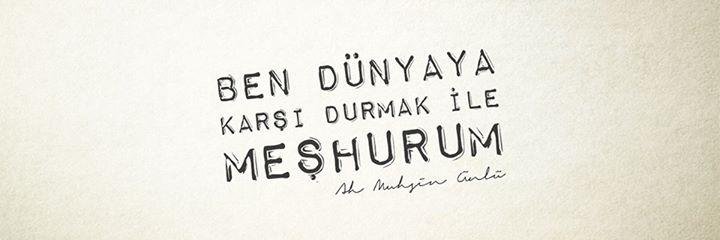 BEN DÜNYAYA
KARŞI DURMAK İLE
MEŞHURUM
Ah Muhsin Ünlü